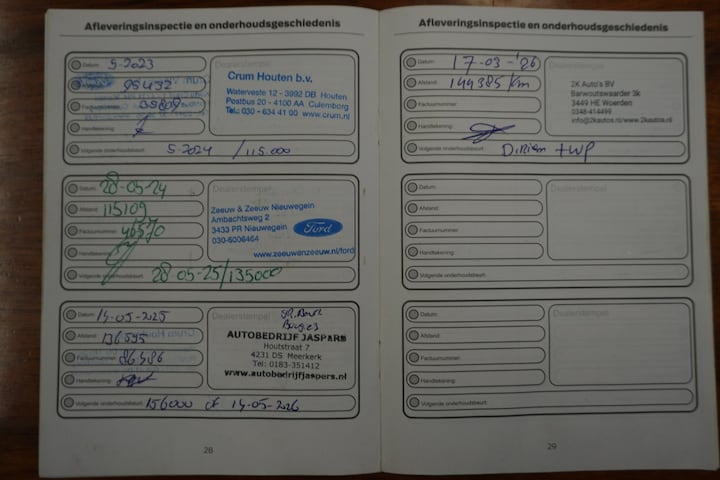 Afleveringsinspectie en onderhoudsgeschiedenis
Datum: 5-2023
95432
Factuurnummer:
Handtekening:
Volgende onderhoudsbeurt: 5-2024 / 115.000
Dealerstempel
Crum Houten b.v.
Waterveste 12 - 3992 DB Houten
Postbus 20 - 4100 AA Culemborg
Tel.: 030 - 634 41 00 www.crum.nl
Datum: 28-05-24
Afstand: 115109
Factuurnummer: 46570
Handtekening:
Volgende onderhoudsbeurt: 28 05-25/135000
Dealerstempel
Zeeuw & Zeeuw Nieuwegein
Ambachtsweg 2
3433 PR Nieuwegein
030-6006464
Ford
www.zeeuwenzeeuw.nl/ford
Datum: 14-05-2025
Afstand: 136595
Factuurnummer: 86486
Handtekening:
Volgende onderhoudsbeurt: 156000 of 14-05-2026
Dealerstempel
AUTOBEDRIJF JASPERS
Houtstraat 7
4231 DS Meerkerk
Tel: 0183-351412
www.autobedrijfjaspers.nl
28
Afleveringsinspectie en onderhoudsgeschiedenis
Datum: 17-03-'26
Afstand: 144385 km
Factuurnummer:
Handtekening:
Volgende onderhoudsbeurt: D.Riem + WP
Dealerstempel
2K Auto's BV
Barwoutswaarder 3k
3449 HE Woerden
0348-414499
info@2kautos.nl/www.2kautos.nl
Datum:
Afstand:
Factuurnummer:
Handtekening:
Volgende onderhoudsbeurt:
Dealerstempel
Datum:
Afstand:
Factuurnummer:
Handtekening:
Volgende onderhoudsbeurt:
Dealerstempel
29